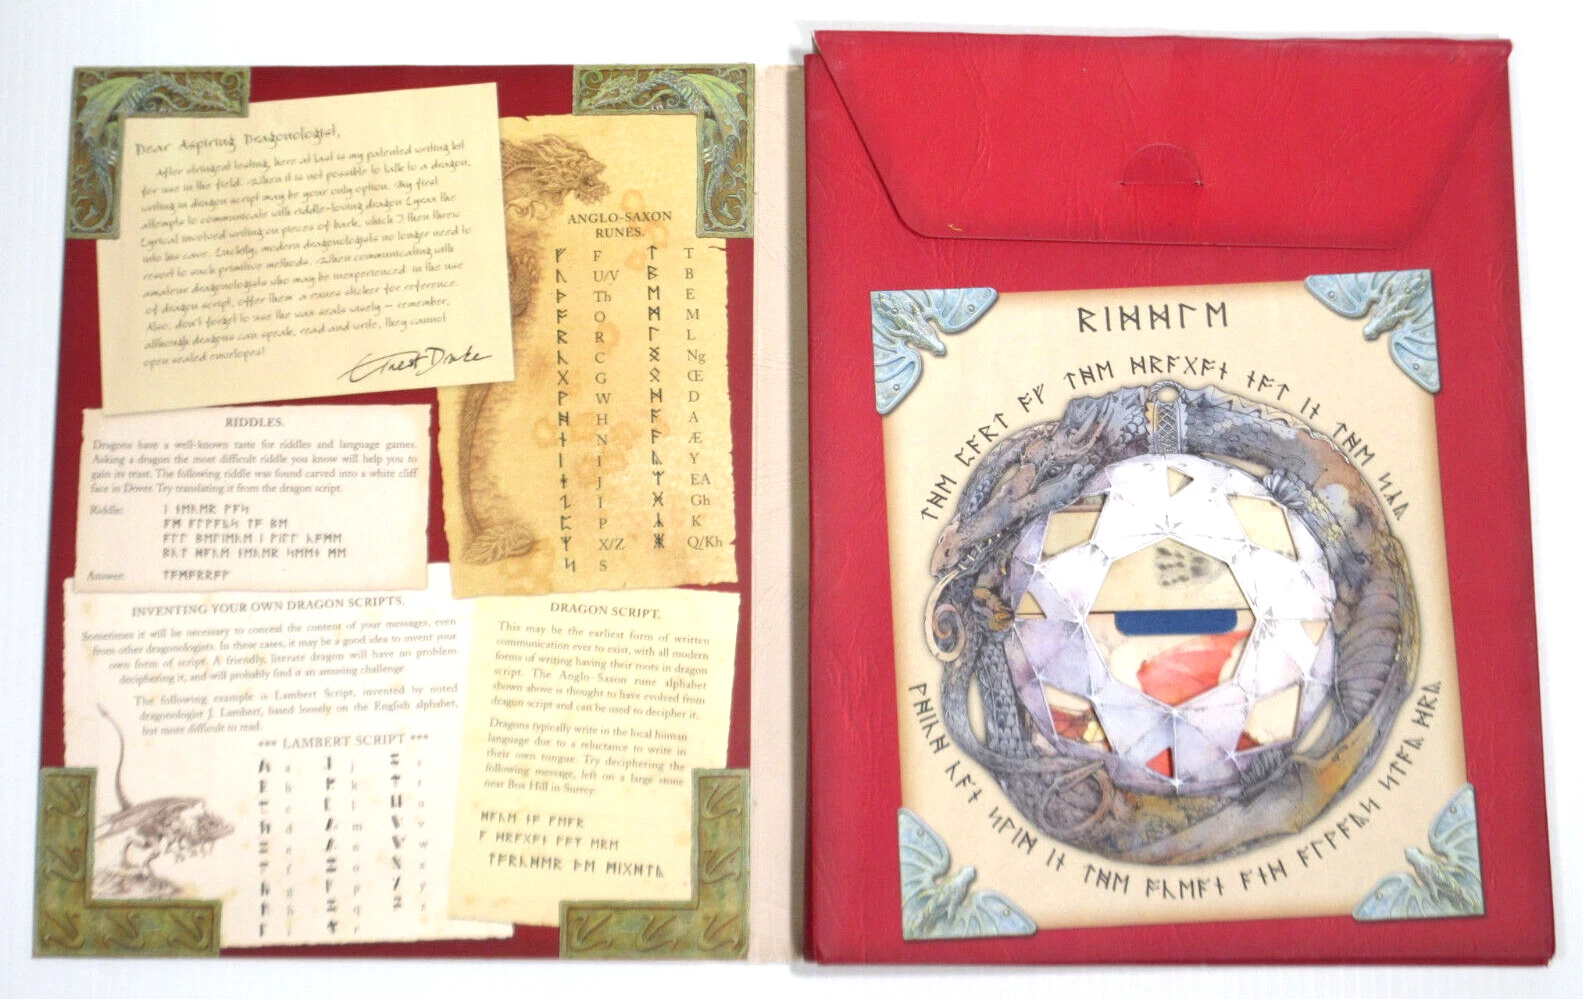 Dear Aspiring Dragonologist,
After stringent testing, here at last is my patented writing kit
for use in the field. When it is not possible to talk to a dragon,
writing in dragon script may be your only option. My first
attempts to communicate with riddle-loving dragon Lyrax the
Lyrical involved writing on pieces of bark, which I then threw
into his cave. Luckily, modern dragonologists no longer need to
resort to such primitive methods. When communicating with
amateur dragonologists who may be inexperienced in the use
of dragon script, offer them a runes sticker for reference.
Also, don't forget to use the wax seals wisely – remember,
although dragons can speak, read and write, they cannot
open sealed envelopes!
Ernest Drake
ANGLO-SAXON
RUNES.
ᚠ F ᛏ T
ᚢ U/V ᛒ B
ᚦ Th ᛖ E
ᚩ O ᛗ M
ᚱ R ᛚ L
ᚳ C ᛝ Ng
ᚷ G ᛟ Œ
ᚹ W ᛞ D
ᚻ H ᚪ A
ᚾ N ᚫ Æ
ᛁ I ᚣ Y
J EA
Ï Gh
ᛈ P K
X/Z Q/Kh
S
RIDDLES.
Dragons have a well-known taste for riddles and language games.
Asking a dragon the most difficult riddle you know will help you to
gain its trust. The following riddle was found carved into a white cliff
face in Dover. Try translating it from the dragon script.
Riddle: ᛁ ᚾᛖᚢᛖᚱ ᚹᚪᛋ
ᚪᛗ ᚪᛚᚹᚪᚣᛋ ᛏᚩ ᛒᛖ
ᚪᛚᛚ ᛒᛖᛚᛁᛖᚢᛖ ᛁ ᚹᛁᛚᛚ ᚳᚩᛗᛖ
ᛒᚢᛏ ᚻᚪᚢᛖ ᚾᛖᚢᛖᚱ ᛋᛖᛖᚾ ᛗᛖ
Answer: ᛏᚩᛗᚩᚱᚱᚩᚹ
INVENTING YOUR OWN DRAGON SCRIPTS.
Sometimes it will be necessary to conceal the content of your messages, even
from other dragonologists. In these cases, it may be a good idea to invent your
own form of script. A friendly, literate dragon will have no problem
deciphering it, and will probably find it an amusing challenge.
The following example is Lambert Script, invented by noted
dragonologist J. Lambert, based loosely on the English alphabet,
but more difficult to read.
*** LAMBERT SCRIPT ***
DRAGON SCRIPT.
This may be the earliest form of written
communication ever to exist, with all modern
forms of writing having their roots in dragon
script. The Anglo-Saxon rune alphabet
shown above is thought to have evolved from
dragon script and can be used to decipher it.
Dragons typically write in the local human
language due to a reluctance to write in
their own tongue. Try deciphering the
following message, left on a large stone
near Box Hill in Surrey:
ᚻᚪᚢᛖ ᚾᚩ ᚠᛖᚪᚱ
ᚱᛁᛞᛞᛚᛖ
ᛏᚻᛖ ᛈᚪᚱᛏ ᚩᚠ ᛏᚻᛖ ᛞᚱᚪᚷᚩᚾ ᚾᚩᛏ ᛁᚾ ᛏᚻᛖ ᛋᚳᚣ
ᚹᚻᛁᚳᚻ ᚳᚪᚾ ᛋᚹᛁᛗ ᛁᚾ ᛏᚻᛖ ᚩᚳᛖᚪᚾ ᚪᚾᛞ ᚪᛚᚹᚪᚣᛋ ᛋᛏᚪᚣ ᛞᚱᚣ